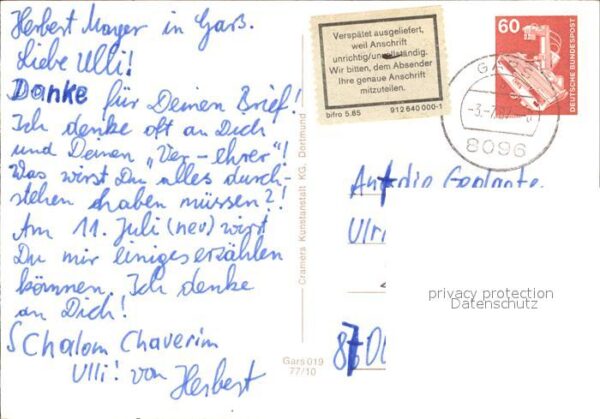 Herbert Mayer in Garß.
Liebe Ulli!
Danke für Deinen Brief!
Ich denke oft an Dich
und Deinen „Ver-ehrer"!
Was wirst Du alles durch-
stehen haben müssen?!
Am 11. Juli (neu) wirst
Du mir einiges erzählen
können. Ich denke
an Dich!
Schalom Chaverim
Ulli! von Herbert
Cramers Kunstanstalt KG, Dortmund
Gars 019
77/10
Verspätet ausgeliefert,
weil Anschrift
unrichtig/unvollständig.
Wir bitten, dem Absender
Ihre genaue Anschrift
mitzuteilen.
bifro 5.85 912 640 000-1
60
DEUTSCHE BUNDESPOST
8096
An die
Ulri
87
privacy protection
Datenschutz